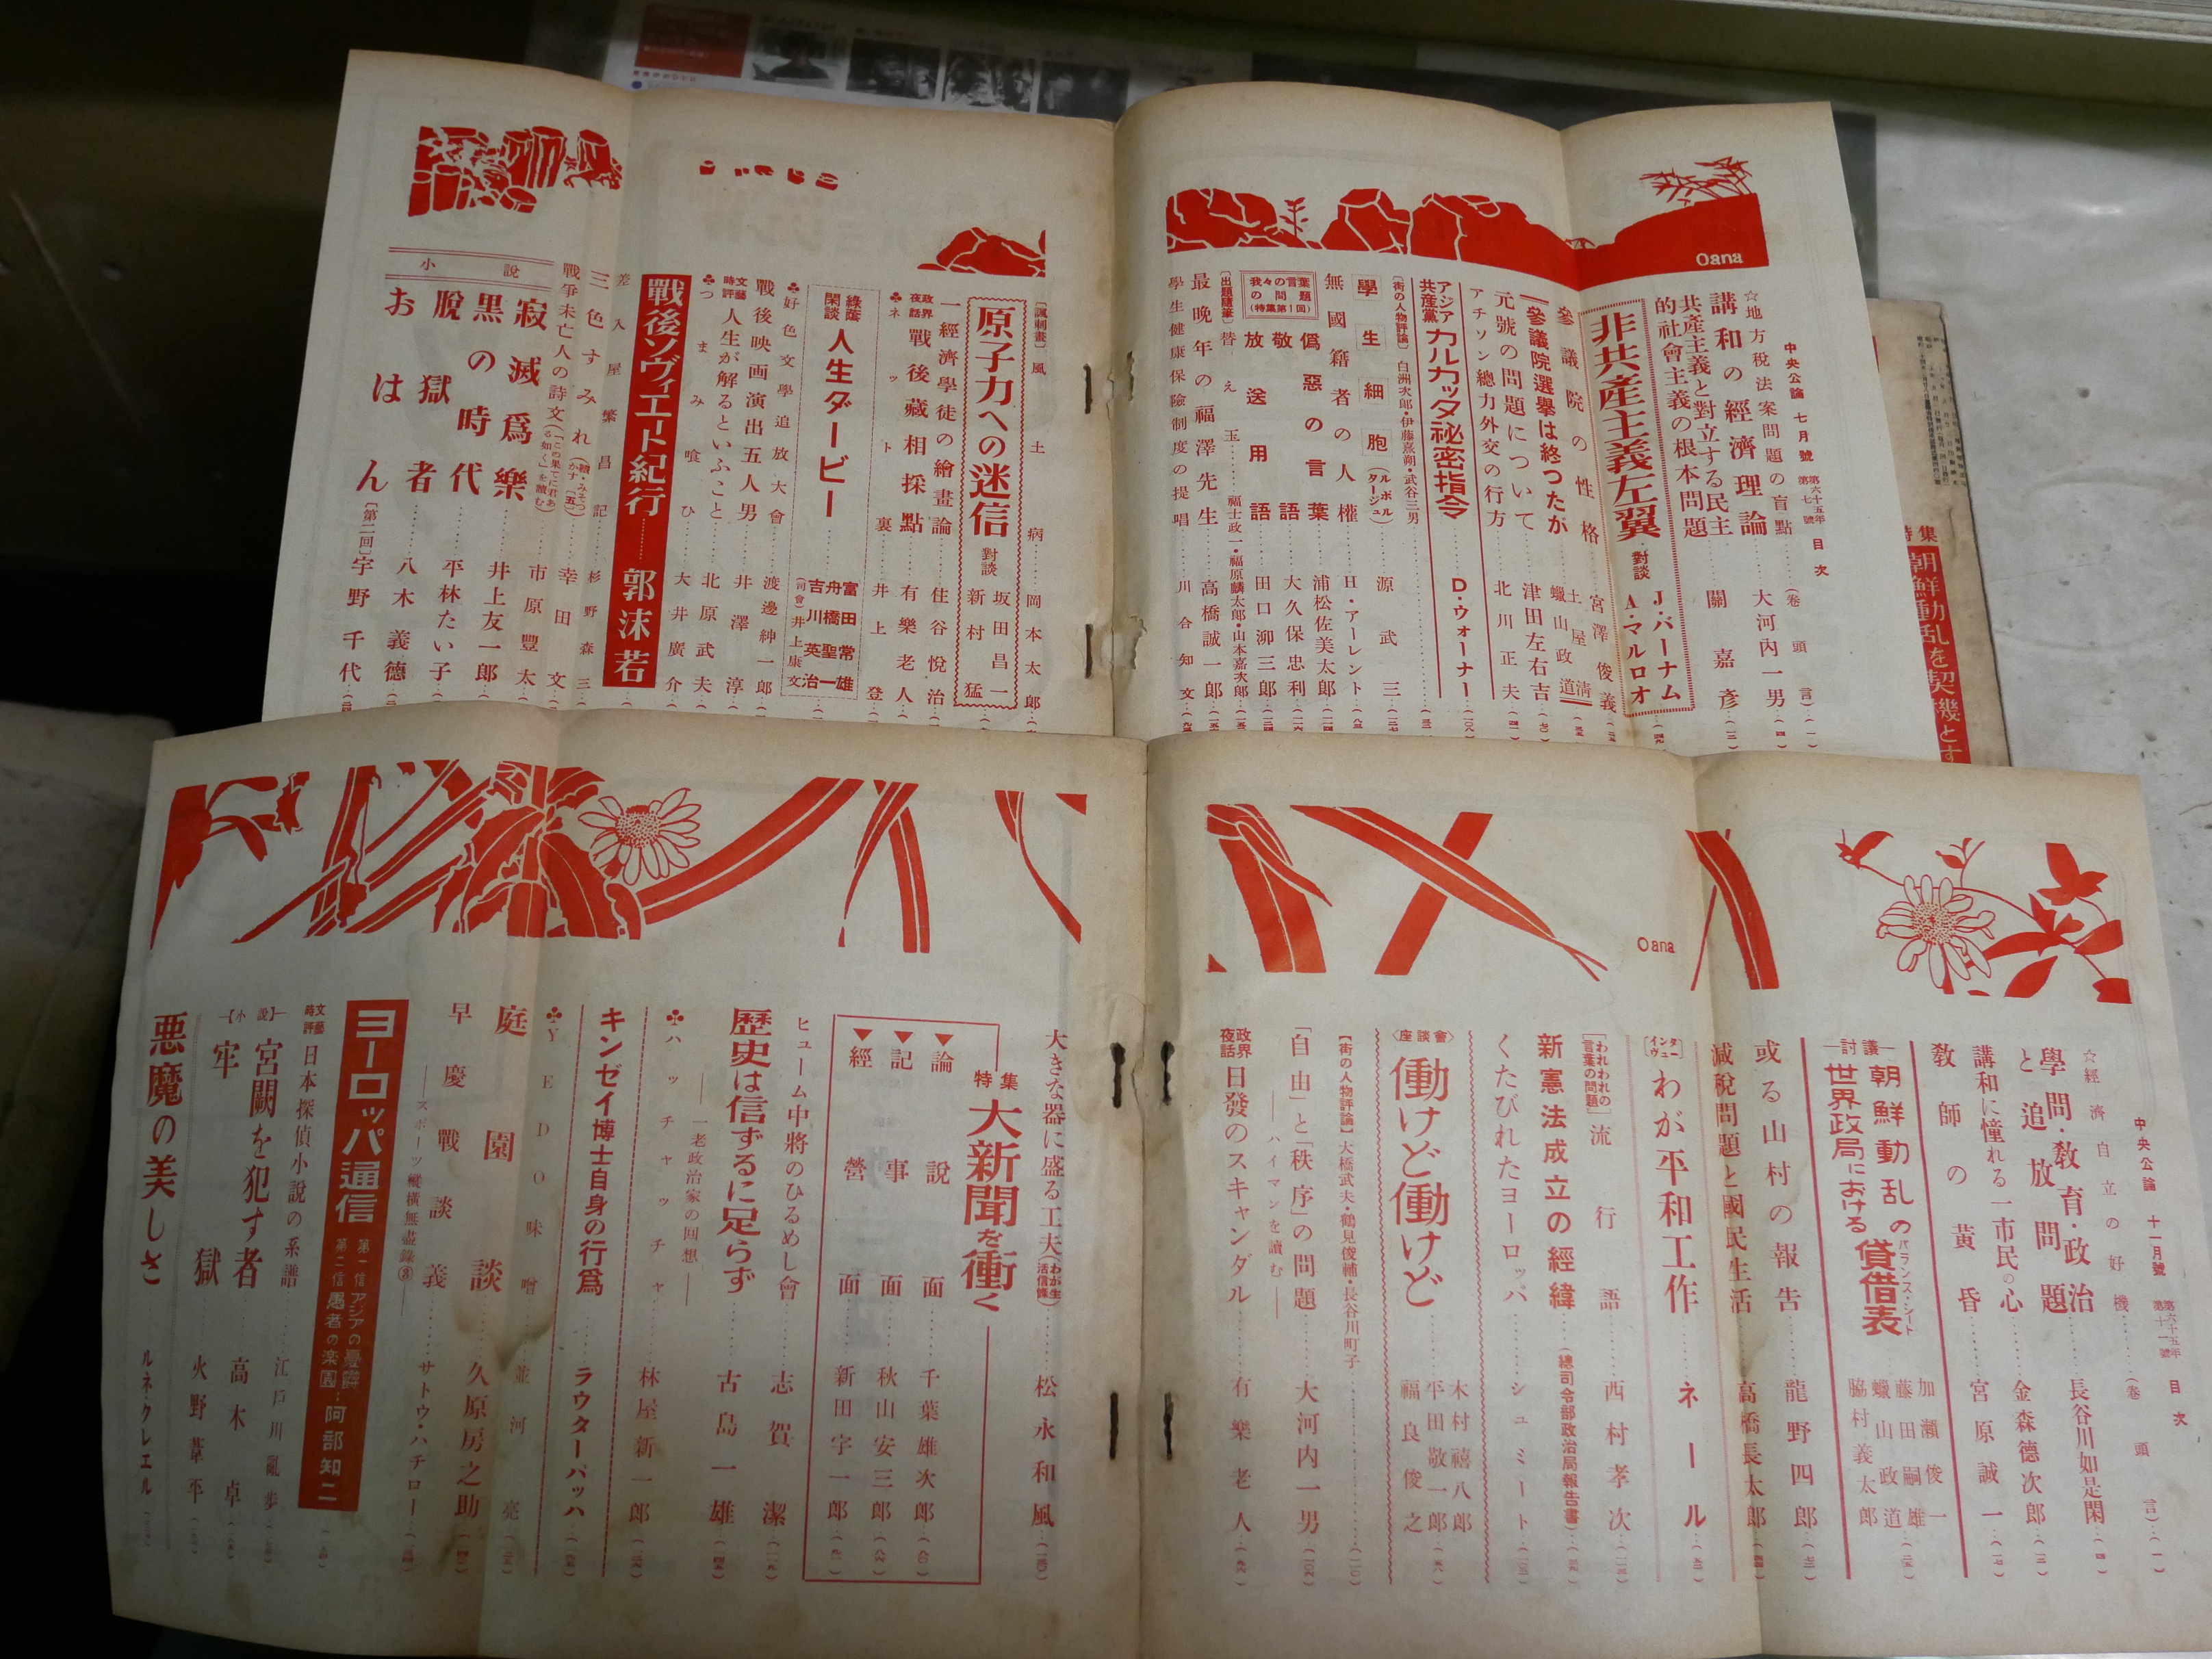 中央公論 七月號 第六十五年 第七號 目次
☆地方稅法案問題の盲點……(卷頭言)…(一)
講和の經濟理論……大河内一男
共產主義と對立する民主的社會主義の根本問題……關嘉彥
非共產主義左翼 對談 J・バーナム A・マルロオ
參議院の性格……宮澤俊義
參議院選擧は終つたが 土屋清 蠟山政道
元號の問題について……津田左右吉
アチソン總力外交の行方……北川正夫
アジア共產黨 カルカッタ秘密指令……D・ウォーナー
〔街の人物評論〕白洲次郎・伊藤熹朔・武谷三男
學生細胞(ルポルタージュ)……源武三
無國籍者の人權……H・アーレント
我々の言葉の問題(特集第1回)
僞惡の言葉……浦松佐美太郎
敬語……大久保忠利
放送用語……田口泖三郎
〔出題隨筆〕替え玉……福士政一・福原麟太郎・山本嘉次郎
最晚年の福澤先生……高橋誠一郎
學生健康保險制度の提唱……川合知文
Oana
〔諷刺畫〕風土病……岡本太郎
原子力への迷信 對談 坂田昌一 新村猛
一經濟學徒の繪畫論……住谷悅治
政界夜話 戰後藏相採點……有樂老人
♣ネット裏……井上登
綠蔭閑談 人生ダービー…… 富田常雄 舟橋聖一 吉川英治 (司會)井上康文
♣好色文學追放大會……渡邊紳一郎
戰後映画演出五人男……井澤淳
文藝時評 人生が解るといふこと……北原武夫
♣つまみ喰ひ……大井廣介
戰後ソヴィエート紀行……郭沫若
差入屋繁昌記……杉野森三
三色すみれ……幸田文
戰爭未亡人の詩文(「この果てに君ある如く」を讀む)……市原豐太
小說
寂滅爲樂……井上友一郎
黒の時代……平林たい子
脫獄者……八木義德
おはん〔第二回〕宇野千代
特集 朝鮮動乱を契機とす
中央公論 十一月號 第六十五年 第十一號 目次
☆經濟自立の好機……(卷頭言)…(一)
學問・敎育・政治と追放問題……長谷川如是閑
講和に憧れる一市民の心……金森德次郎
敎師の黃昏……宮原誠一
討議 朝鮮動乱の世界政局における貸借表 バランス・シート 加瀨俊一 藤田嗣雄 蠟山政道 脇村義太郎
或る山村の報告……龍野四郎
減稅問題と國民生活……高橋長太郎
〔インタヴュー〕わが平和工作……ネール
〔われわれの言葉の問題〕流行語……西村孝次
新憲法成立の經緯……(總司令部政治局報告書)
くたびれたヨーロッパ……シュミート
〈座談會〉働けど働けど 木村禧八郎 平田敬一郎 福良俊之
〔街の人物評論〕大橋武夫・鶴見俊輔・長谷川町子
「自由」と「秩序」の問題 ―ハイマンを讀む― 大河内一男
政界夜話 日發のスキャンダル……有樂老人
Oana
大きな器に盛る工夫(わが生活信條)……松永和風
特集 大新聞を衝く
▼論說面……千葉雄次郎
▼記事面……秋山安三郎
▼經營面……新田宇一郎
ヒューム中將のひるめし會……志賀潔
歷史は信ずるに足らず ―一老政治家の回想― 古島一雄
♣ハッチャッチャ……林屋新一郎
キンゼイ博士自身の行爲……ラウターバッハ
♣YEDO味噌……並河亮
庭園談……久原房之助
早慶戰談義 ―スポーツ縱橫無盡錄― サトウ・ハチロー
ヨーロッパ通信 第一信 アジアの憂鬱 第二信 愚者の楽園……阿部知二
文藝時評 日本探偵小説の系譜……江戶川亂步
【小說】
宮闕を犯す者……高木卓
牢獄……火野葦平
悪魔の美しさ ルネ・クレエル